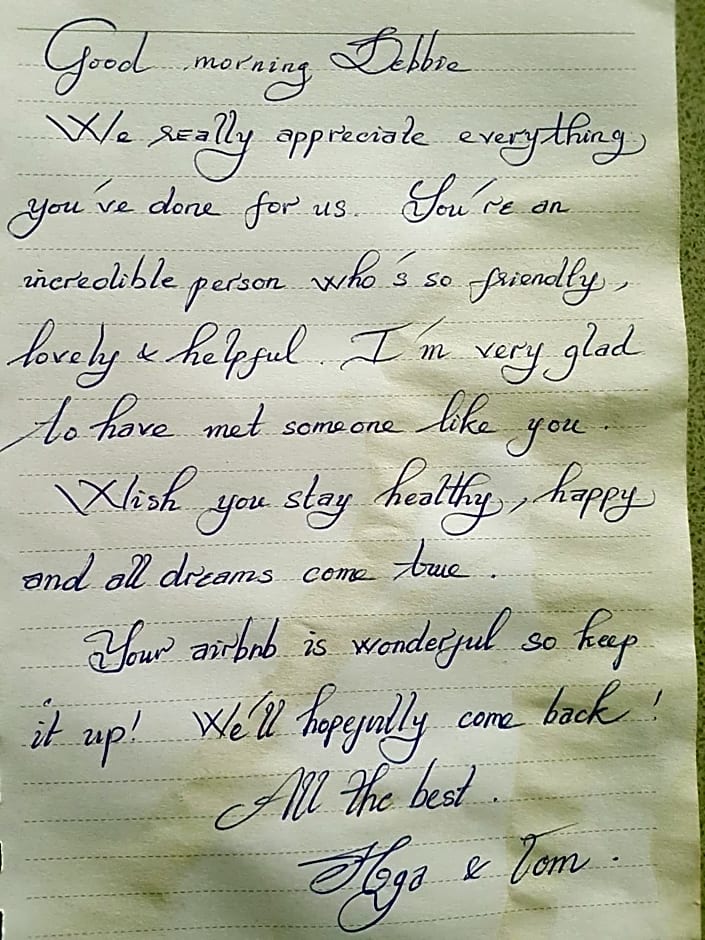 Good morning Debbie
We really appreciate everything
you've done for us. You're an
incredible person who's so friendly,
lovely & helpful. I'm very glad
to have met someone like you.
Wish you stay healthy, happy
and all dreams come true.
Your airbnb is wonderful so keep
it up! We'll hopefully come back!
All the best.
& Tom.